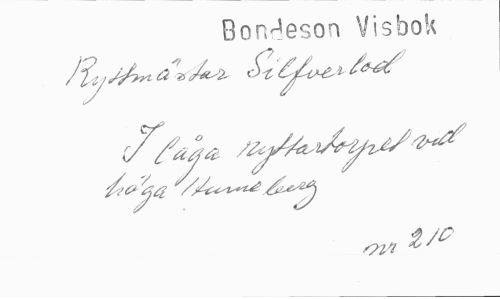 Bondeson Visbok
Ryttmästar Silfverlod
I låga ryttartorpet vid
höga Hunneberg
nr 210